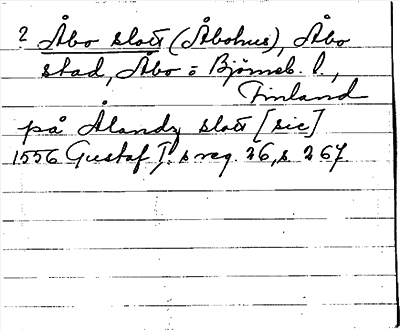 ? Åbo slott (Åbohus), Åbo
stad, Åbo o Björneb. l.,
Finland
på Ålandz slott [sic]
1556 Gustaf I:s reg. 26, s 267